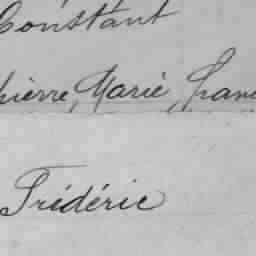 Constant
Pierre, Marie, Franc
Frédéric